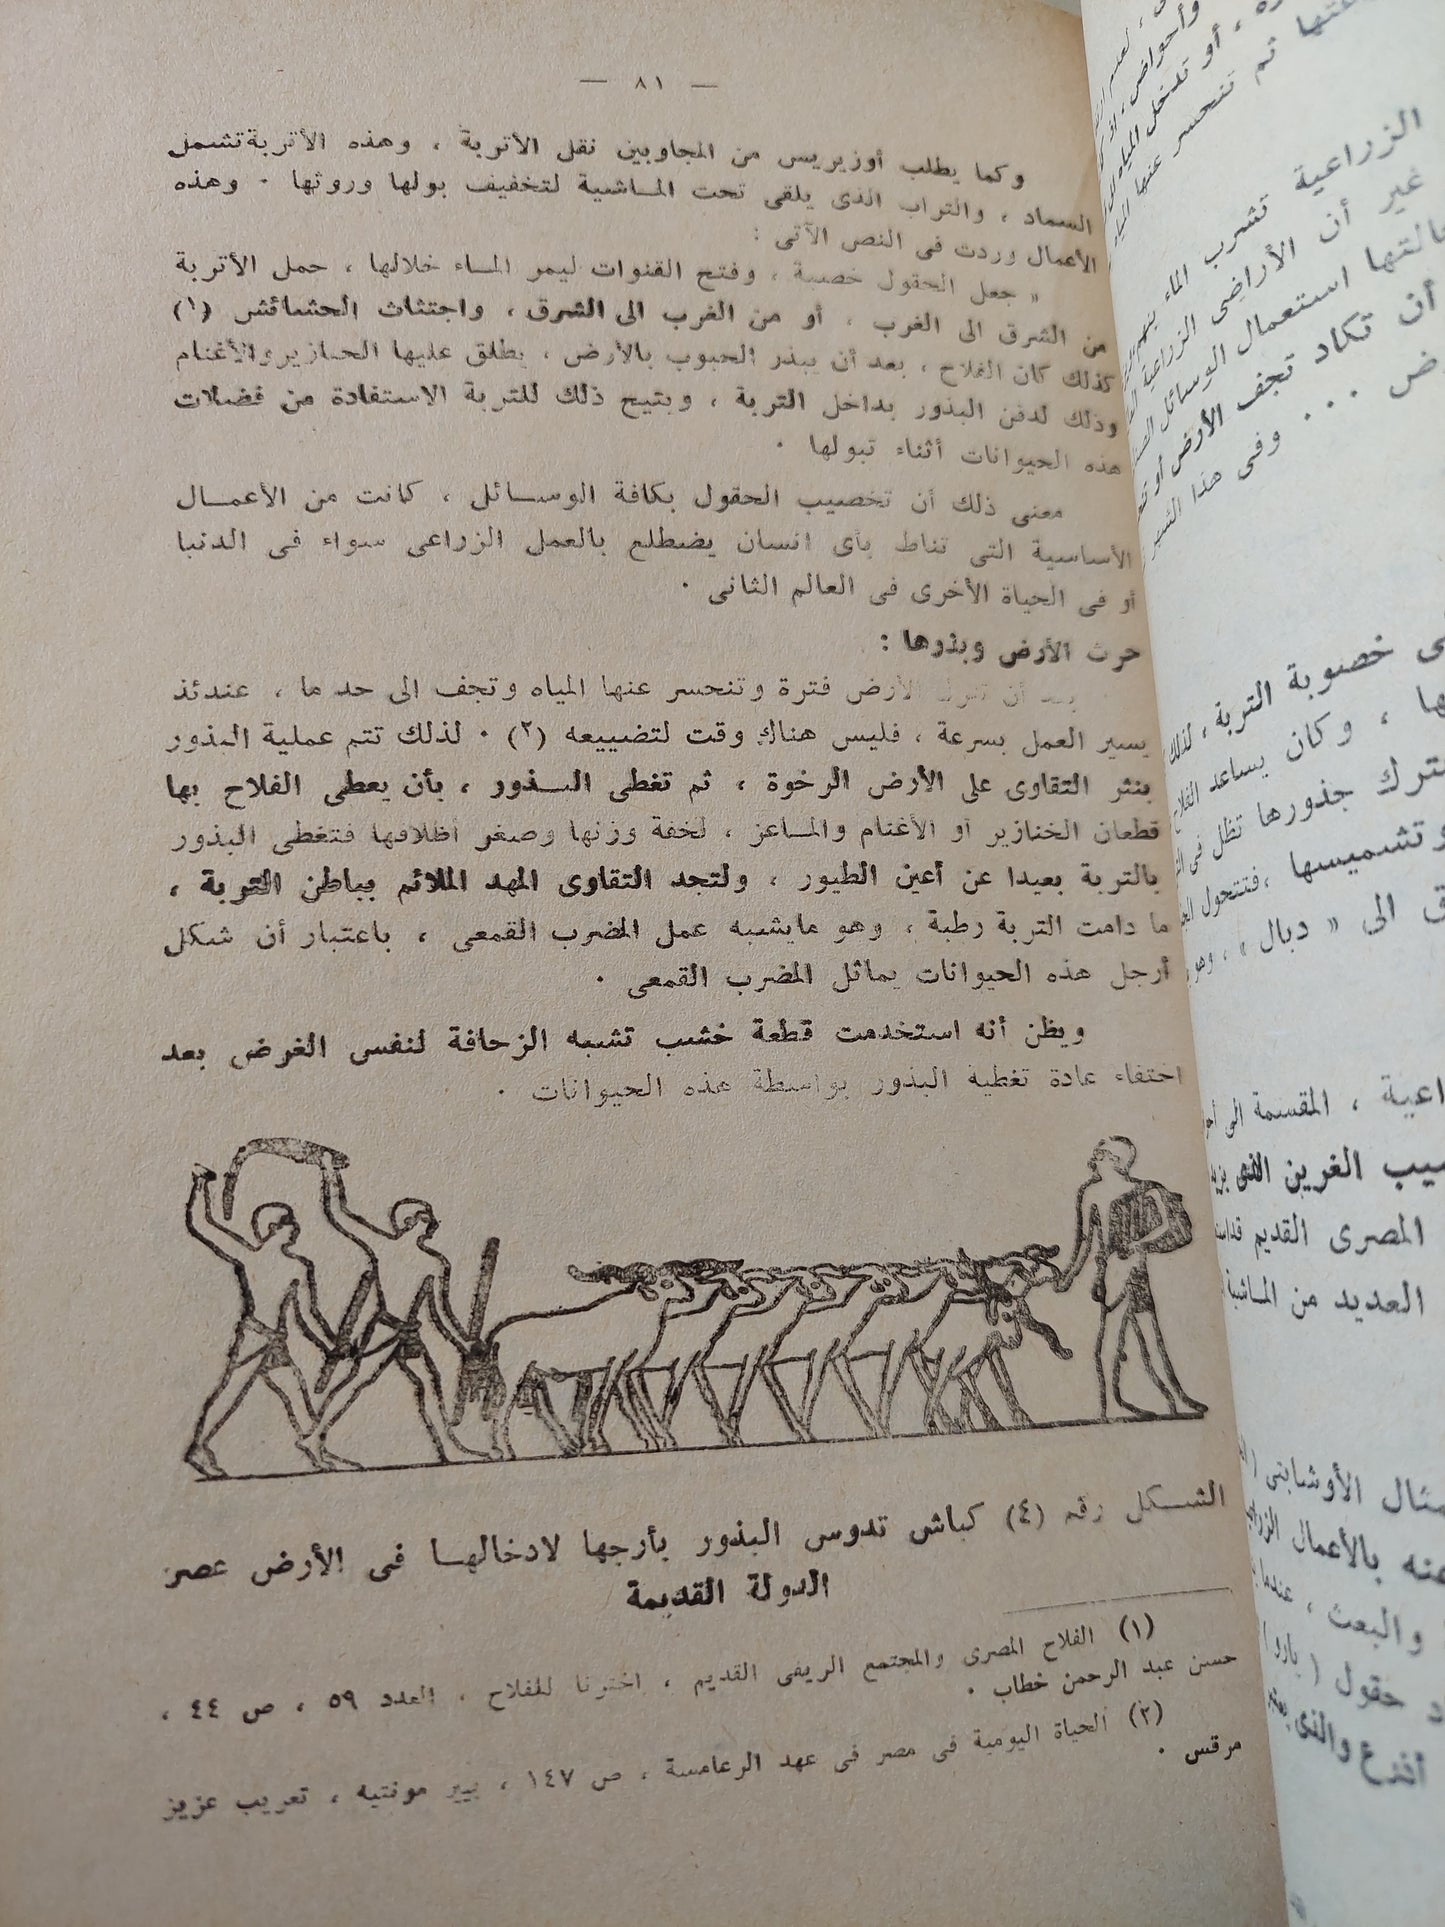 — ٨١ —
وكما يطلب أوزيريس من المجاوبين نقل الأتربة ، وهذه الأتربة تشمل
السماد ، والتراب الذى يلقى تحت الماشية لتخفيف بولها وروثها . وهذه
الأعمال وردت فى النص الآتى :
« جعل الحقول خصبة ، وفتح القنوات ليمر الماء خلالها ، حمل الأتربة
من الشرق الى الغرب ، أو من الغرب الى الشرق ، واجتثاث الحشائش (١)
كذلك كان الفلاح ، بعد أن يبذر الحبوب بالأرض ، يطلق عليها الخنازير والأغنام
وذلك لدفن البذور بداخل التربة ، ويتيح ذلك للتربة الاستفادة من فضلات
هذه الحيوانات أثناء تبولها .
معنى ذلك أن تخصيب الحقول بكافة الوسائل ، كانت من الأعمال
الأساسية التى تناط بأى انسان يضطلع بالعمل الزراعى سواء فى الدنيا
أو فى الحياة الأخرى فى العالم الثانى .
حرث الأرض وبذرها :
بعد أن الأرض فترة وتنحسر عنها المياه وتجف الى حد ما ، عندئذ
يسير العمل بسرعة ، فليس هناك وقت لتضييعه (٢) . لذلك تتم عملية البذور
بنثر التقاوى على الأرض الرخوة ، ثم تغطى البذور ، بأن يعطى الفلاح بها
قطعان الخنازير أو الأغنام والماعز ، لخفة وزنها وصغر أظلافها فتغطى البذور
بالتربة بعيدا عن أعين الطيور ، ولتجد التقاوى المهد الملائم بباطن التربة ،
ما دامت التربة رطبة ، وهو مايشبه عمل المضرب القمعى ، باعتبار أن شكل
أرجل هذه الحيوانات يماثل المضرب القمعى .
ويظن أنه استخدمت قطعة خشب تشبه الزحافة لنفس الغرض بعد
اختفاء عادة تغطية البذور بواسطة هذه الحيوانات .
الشكل رقم (٤) كباش تدوس البذور بأرجها لادخالها فى الأرض عصر
الدولة القديمة
(١) الفلاح المصرى والمجتمع الريفى القديم ، اخترنا للفلاح ، العدد ٥٩ ، ص ٤٤ ،
حسن عبد الرحمن خطاب .
(٢) الحياة اليومية فى مصر فى عهد الرعامسة ، ص ١٤٧ ، بيير مونتيه ، تعريب عزيز
مرقس .
وأحواض
، أو تدخل المياه
ثم تنحسر عنها المياه
الزراعية تشرب الماء
غير أن الأراضى الزراعية
استعمال الوسائل
أن تكاد تجف الأرض أو
. . . وفى هذا
خصوبة التربة ، لذلك
، وكان يساعد
جذورها تظل فى
وتشميسها ، فتتحول
الى « دبال » ، وهو
، المقسمة الى
الغرين الذى
المصرى القديم
العديد من الماشية
الأوشابتى
عنه بالأعمال
والبعث ، عندما
حقول ( بارو )
أذرع والذى